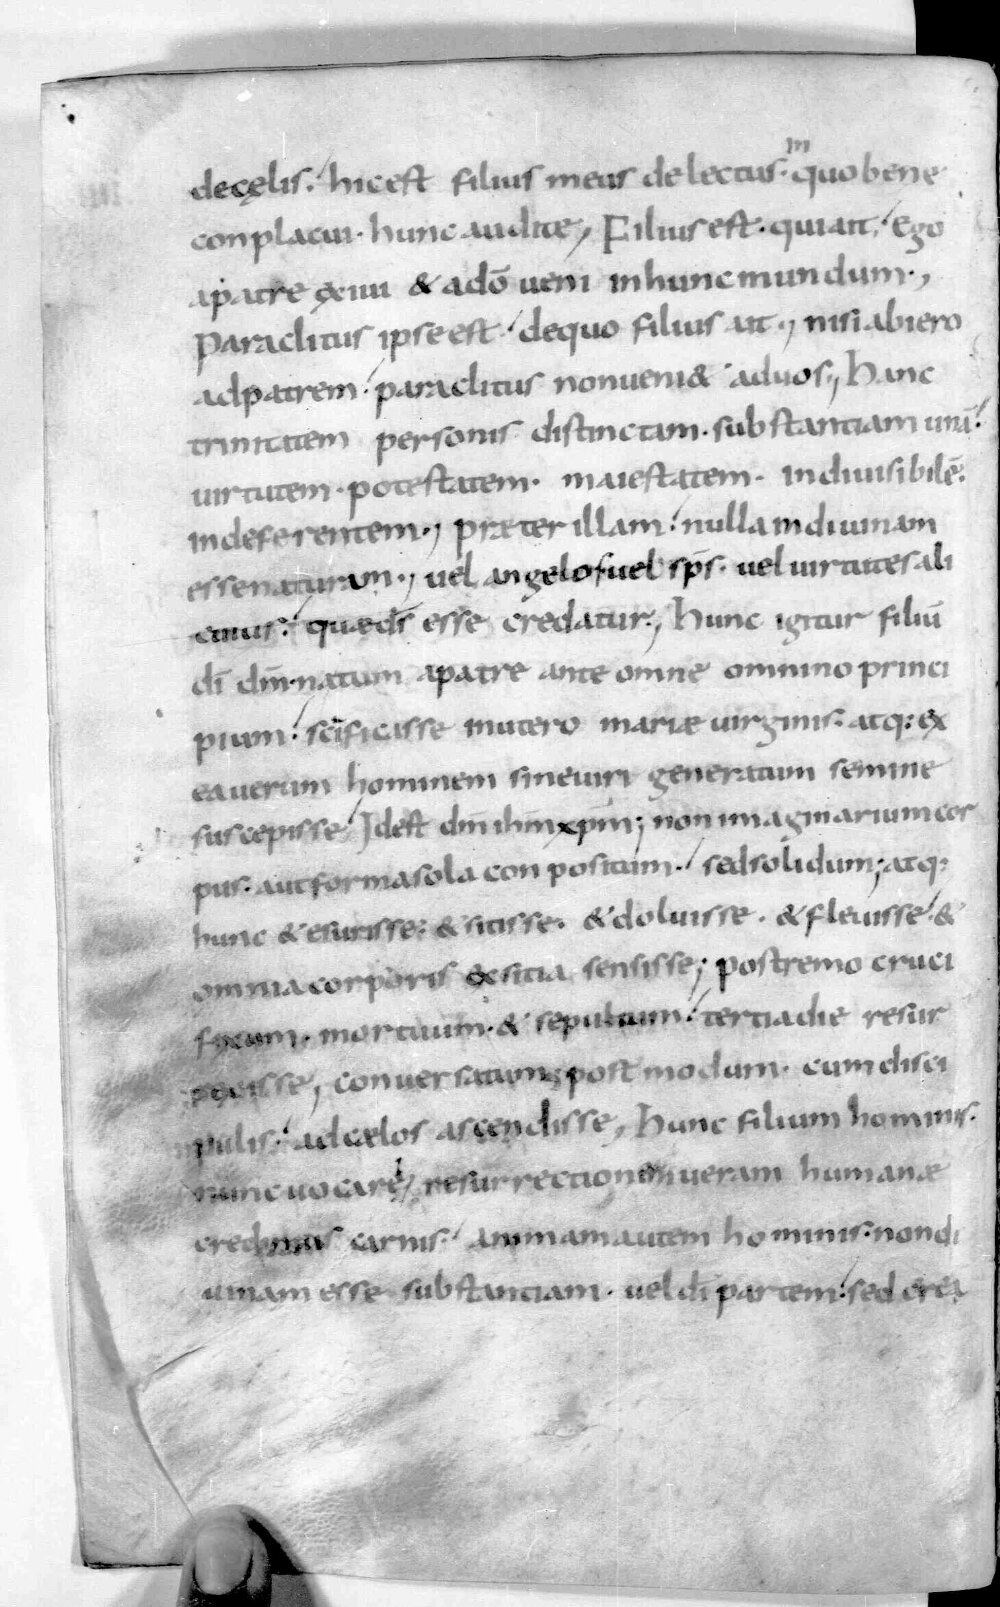 decęlis. hicest filius meus delectus. in quo bene
conplacui. hunc audite, Filius est. qui ait. Ego
apatre exiui & adō ueni inhunc mundum.,
Paraclitus ipse est. dequo filius ait., nisi abiero
adpatrem. paraclitus non ueni& aduos., hanc
trinitatem personis distinctam. substantiam unā.
uirtutem. potestatem. maiestatem. indiuisibilē.
indeferentem., præter illam. nulla m diuinam
esse naturam., uel angelos uel sp̄s. uel uirtutes ali
cuius. quæ d̄s esse credatur., hunc igitur filiū
dī dn̄m. natum apatre ante omne omnino princi
pium. sc̄ificasse inutero mariæ uirginis. atq: ex
ea uerum hominem sineuiri generatum semine
suscepisse Idest dn̄m ih̄m xp̄m; non imaginarium cor
pus. aut forma sola conpositum. sed solidum; atq:
hunc & esurisse. & sitisse. & doluisse. & fleuisse &
omnia corporis exsitia sensisse; postremo cruci
fixum. mortuum. & sepultum. tertia die resur
rexisse, conuersatum post modum. cum disci
pulis. ad cælos ascendisse, hunc filium hominis.
nunc uocari, resurrectionem ueram humanæ
credimus carnis. animam autem hominis. non di
uinam esse substantiam. uel dī partem. sed crea